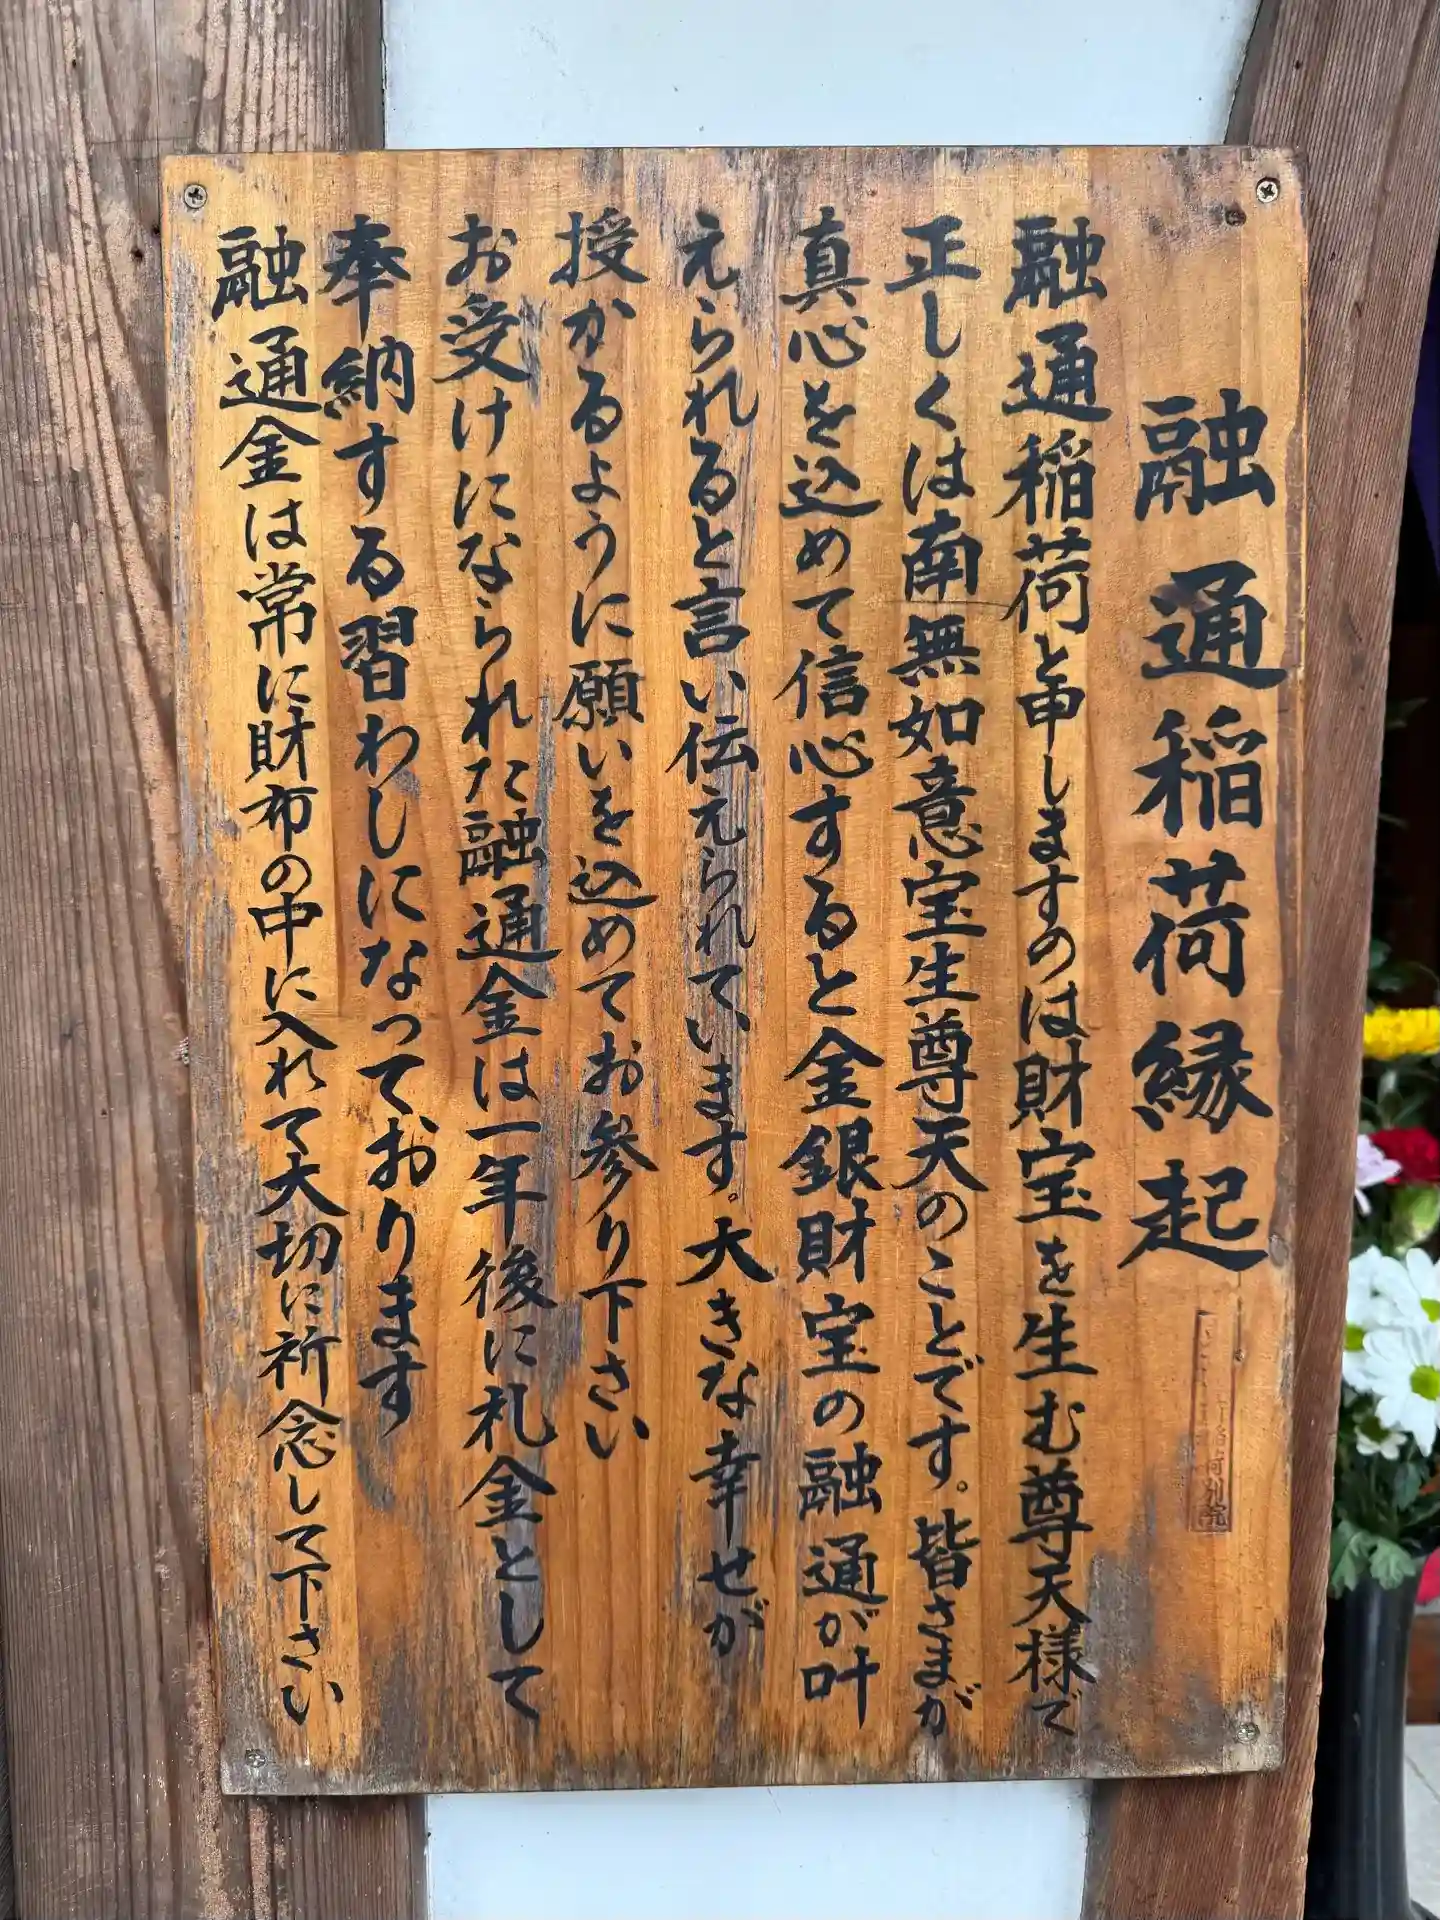 融通稲荷縁起
融通稲荷と申しますのは財宝を生む尊天様で
正しくは南無如意宝生尊天のことです。皆さまが
真心を込めて信心すると金銀財宝の融通が叶
えられると言い伝えられています。大きな幸せが
授かるように願いを込めてお参り下さい
お受けになられた融通金は一年後に札金として
奉納する習わしになっております
融通金は常に財布の中に入れて大切に祈念して下さい